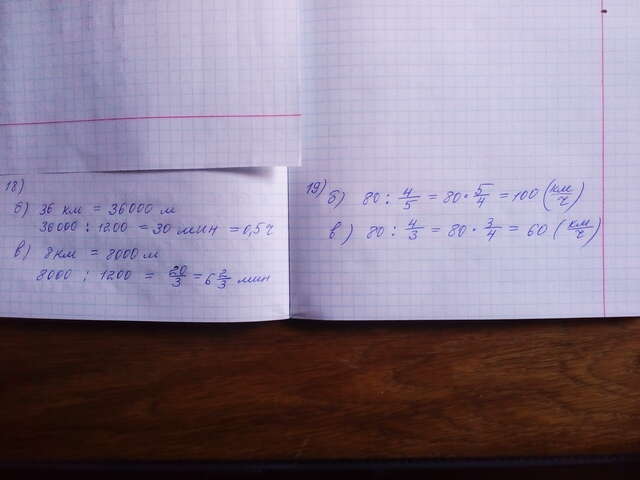 18)
б) 36 км = 36000 м
36000 : 1200 = 30 мин = 0,5 ч
в) 8 км = 8000 м
8000 : 1200 = 20/3 = 6 2/3 мин
19) б) 80 : 4/5 = 80 · 5/4 = 100 (км/ч)
в) 80 : 4/3 = 80 · 3/4 = 60 (км/ч)